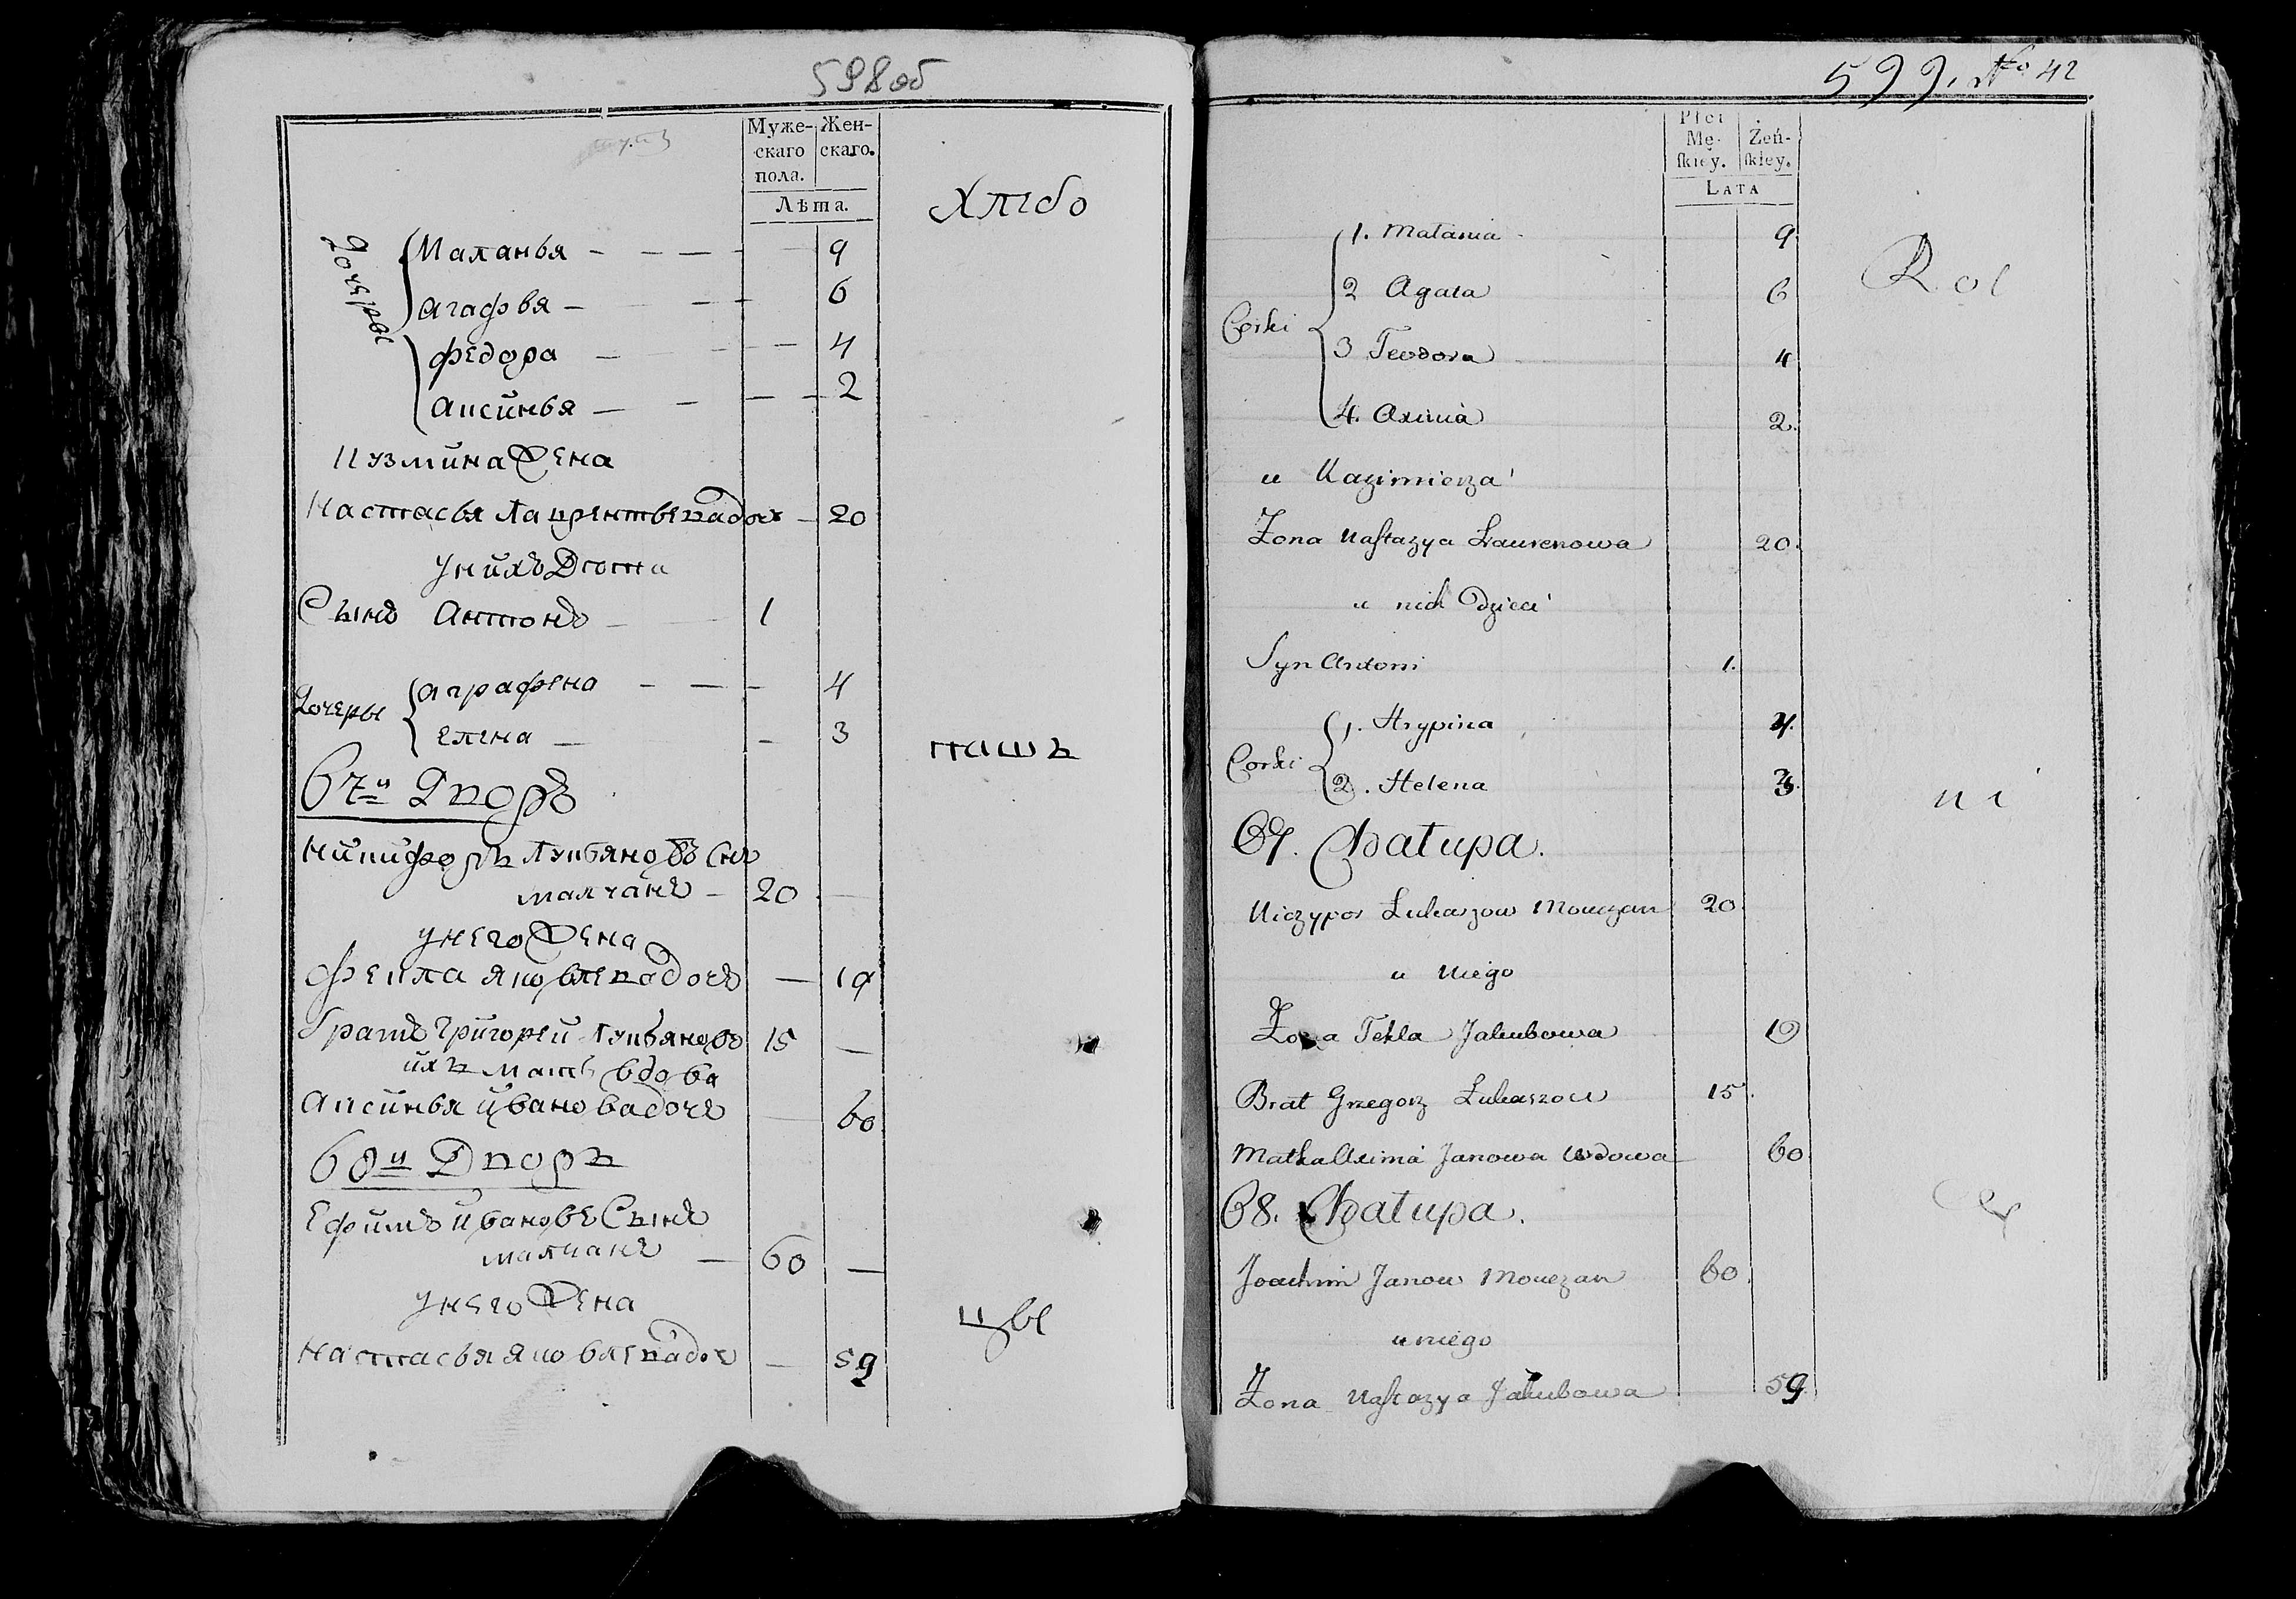 598об
Муже-
скаго
пола.
Жен-
скаго.
Лѣта.
Хлѣбо
Дочери
Маланья 9
Агафья 6
Федора 4
Аксинья 2
Кузмина Жена
Настасья Лаврентьева дочь 20
У нихъ Дѣти
Сынъ Антонъ 1
Дочеры
Аграфена 4
Елена 3
паше
67й Дворъ
Никифоръ Лукьяновъ Снъ
Малчанъ 20
у него Жена
Фекла Яковлева дочь 19
братъ Григорей Лукьяновъ 15
ихъ мать вдова
Аксинья Иванова дочь 60
68й Дворъ
Ефимъ Ивановъ Сынъ
Малчанъ 60
у него Жена
Настасья Яковлева доч 59
цы
599. No 42
Płci
Mę-
skiey.
Żeń-
skiey.
LATA
Rol
Corki
1. Małania 9.
2 Agata 6
3 Teodora 4
4. Axinia 2.
u Kazimierza
Żona Nastazya Laurenowa 20.
u nich Dzieci
Syn Antoni 1.
Corki
1. Hrypina 4.
2. Helena 3.
ni
67. Chatupa.
Niczypor Łukaszow Mouczan 20.
u Niego
Żona Tekla Jakubowa 19
Brat Grzegorz Łukaszow 15.
Matka Axinia Janowa Wdowa 60.
68. Chatupa.
cy
Joachim Janow Mouczan 60.
u niego
Żona Nastazya Jakubowa 59